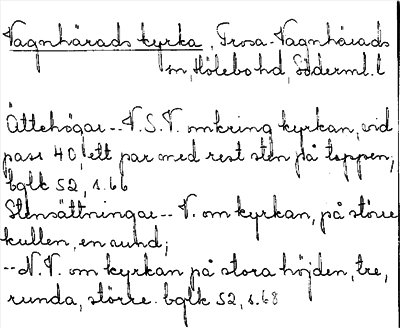 Vagnhärads kyrka, Trosa-Vagnhärads
sn, Hölebo hd, Söderml. l
Ättehögar -- V.S.V. omkring kyrkan, vid
pass 40, ett par med rest sten på toppen,
bglk 52, s. 66
Stensättningar -- V. om kyrkan, på större
kullen, en rund;
-- N.V. om kyrkan på stora höjden, tre,
runda, större. bglk 52, s. 68